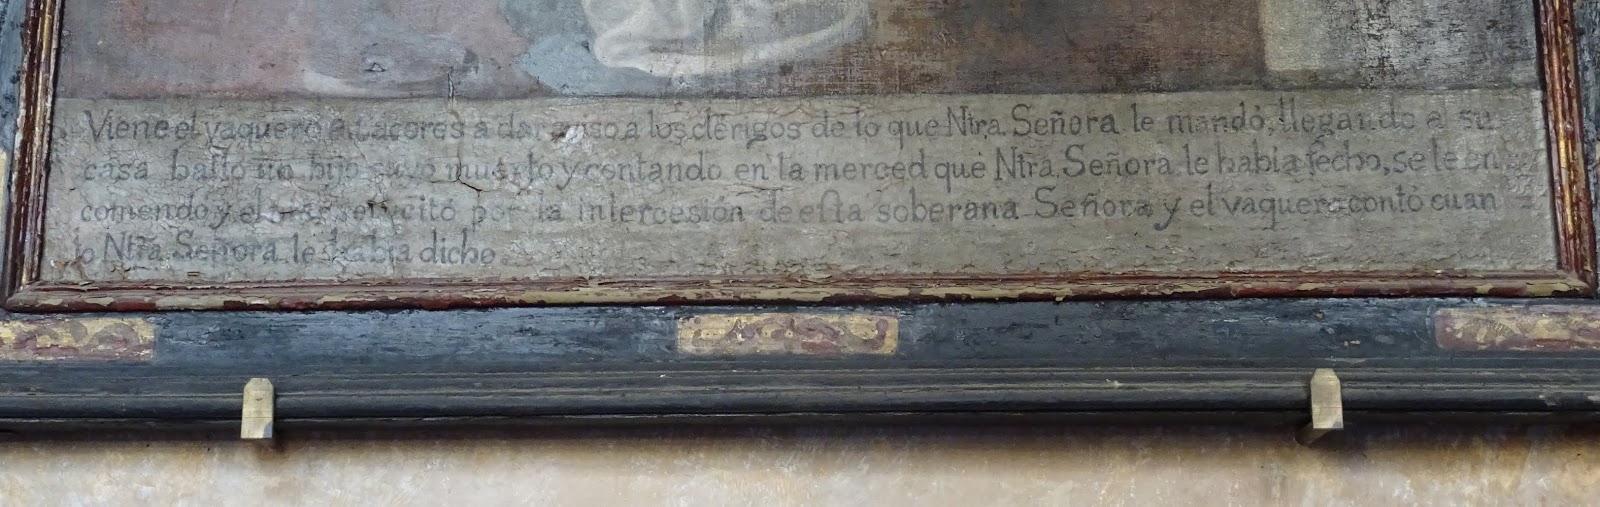 Viene el vaquero a Caceres a dar auiso a los clerigos de lo que Ntra. Señora le mandó, llegando a su
casa hallo un hijo suyo muerto y contando en la merced que Ntra. Señora le habia fecho, se le en
comendo y el resucitó por la intercesión de esta soberana Señora y el vaquero contó cuan
to Ntra. Señora le habia dicho.